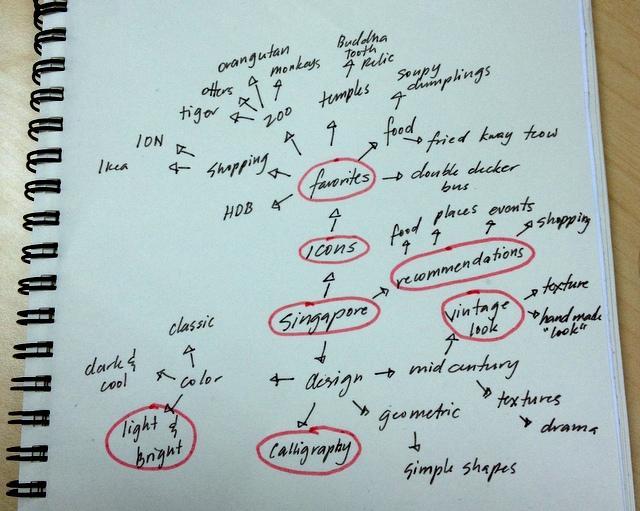 orangutan
Buddha
Tooth
Relic
otters
monkeys
tiger
zoo
temples
Soupy
dumplings
food
fried kway teow
ION
Ikea
Shopping
favorites
double decker
bus
HDB
Icons
food
places
events
shopping
recommendations
Singapore
vintage
look
texture
handmade
"look"
classic
dark &
cool
color
design
mid century
light &
bright
Calligraphy
geometric
textures
drama
simple shapes